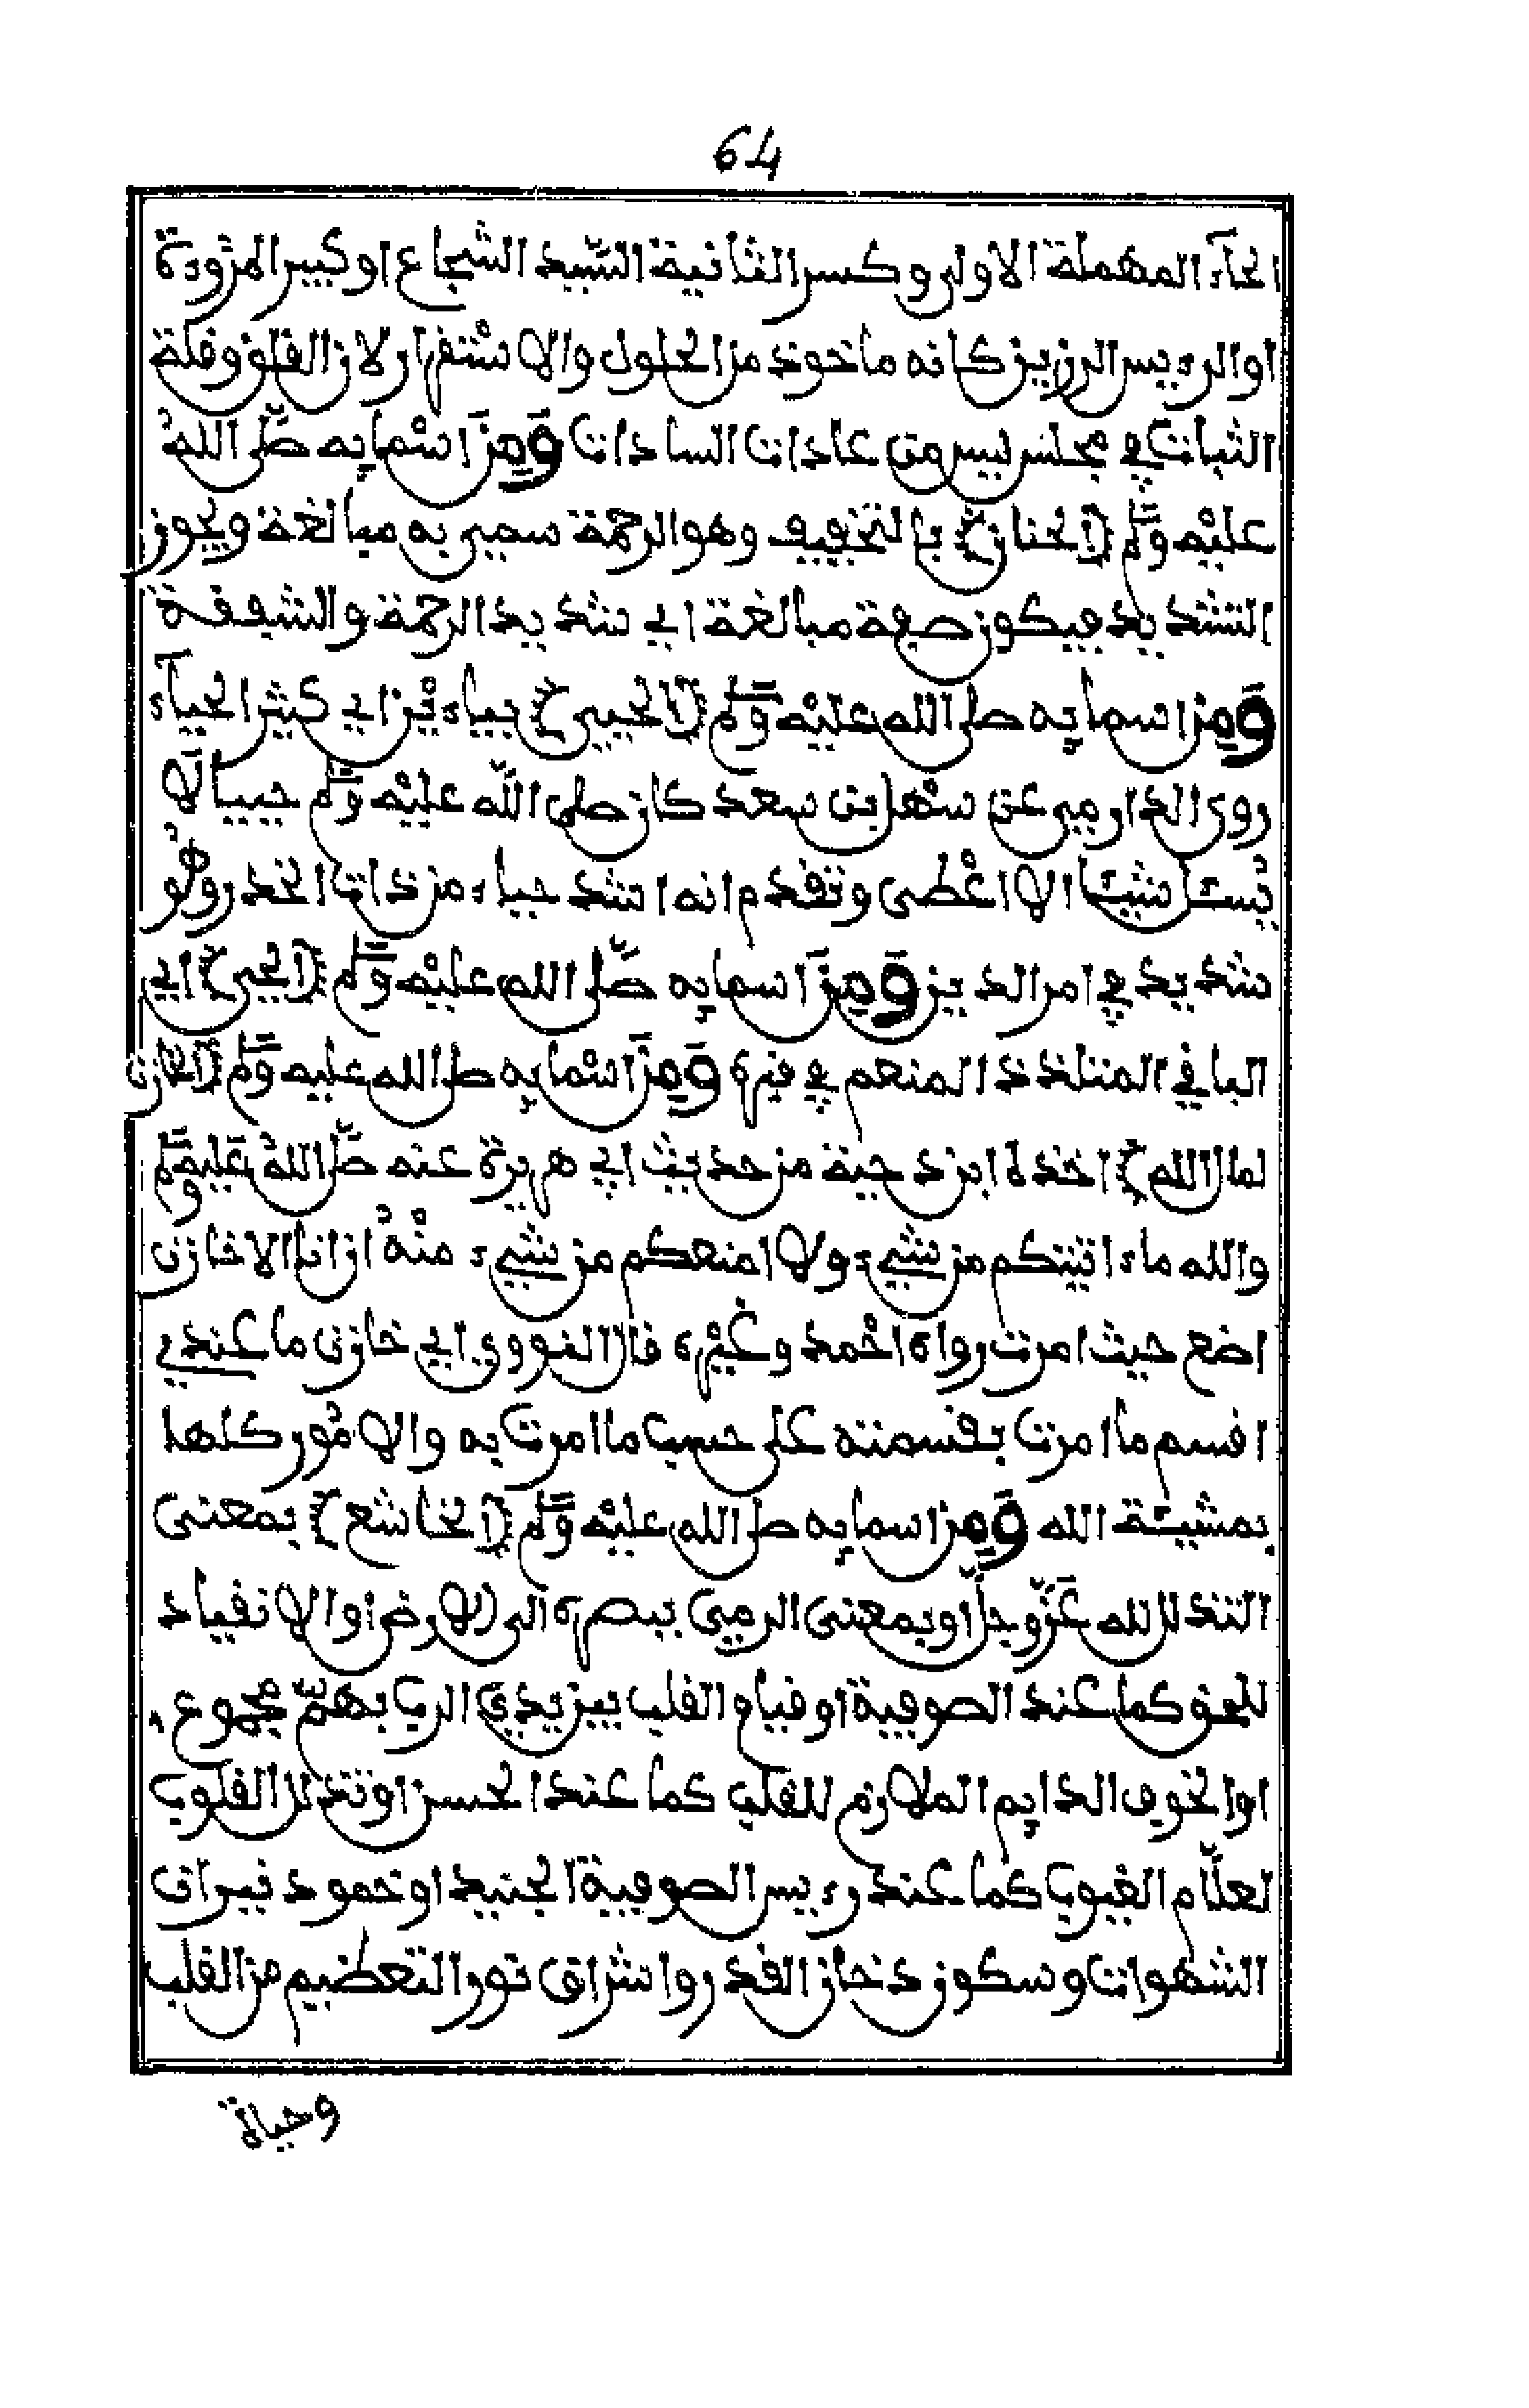 64
الحآء المهملة الاولى وكسر الثانية السّيد الشجاع او كبير المرؤدة
او الرءيس الرزين كانه ماخوذ من الحلول والاستقرار لان القلق وقلة
الثبات في مجلس ليس من عادات السادات وَمِنَ اسْمايِه صَلَّى اللهُ
عليْه وَسَلَّم (الحنان) بالتخفيف وهو الرحمة سمي به مبالغة ويجوز
التشديد فيكون صفة مبالغة اي شديد الرحمة والشفقة
وَمِن اسمايِه صلى الله عليْه وَسَلَّم (الحيي) بياءيْن اي كثير الحيآء
روى الدارمي عن سهْل بن سعد كان صلى اللّه عليْه وَسَلَّم حييا لا
يُسئل شيئا الا اعْطى وتقدم انه اشد حياء من ذات الخدر وهُو
شديد في امر الدين وَمِنَ اسمايِه صَلّى الله عليْه وَسَلَّم (الحي) اي
الباقي المتلذذ المنعم في قبره وَمِنَ اسْمايِه صلى الله عليه وَسَلَّم (الخازن
لمال الله) اخذه ابن دحية من حديث ابي هريرة عنه صَلَّى اللهُ عَليْه وَسَلَّم
والله ماءاتيتكم من شيء ولا امنعكم من شيء منْهُ ان انا الا خازن
اضع حيث امرت رواه احْمد وغيْره قال النووي اي خازن ما عندي
اقسم ما امرت بقسمته على حسب ما امرت به والامُور كلها
بمشيئة الله وَمِن اسمايِه صلى الله عليْه وَسَلَّم (الخاشع) بمعنى
التذلل لله عَزّ وجلّ او بمعنى الرمي ببصره الى الارض او الانقياد
للحق كما عند الصوفية او قيام القلب بين يدي الرب بهمّ مجموع
او الخوف الدايم الملازم للقلب كما عند الحسن او تذلل القلوب
لعلّام الغيوب كما عند رءيس الصوفية الجنيد او خمود نيران
الشهوات وسكون دخان الصدور واشراق نور التعظيم من القلب
وحياة